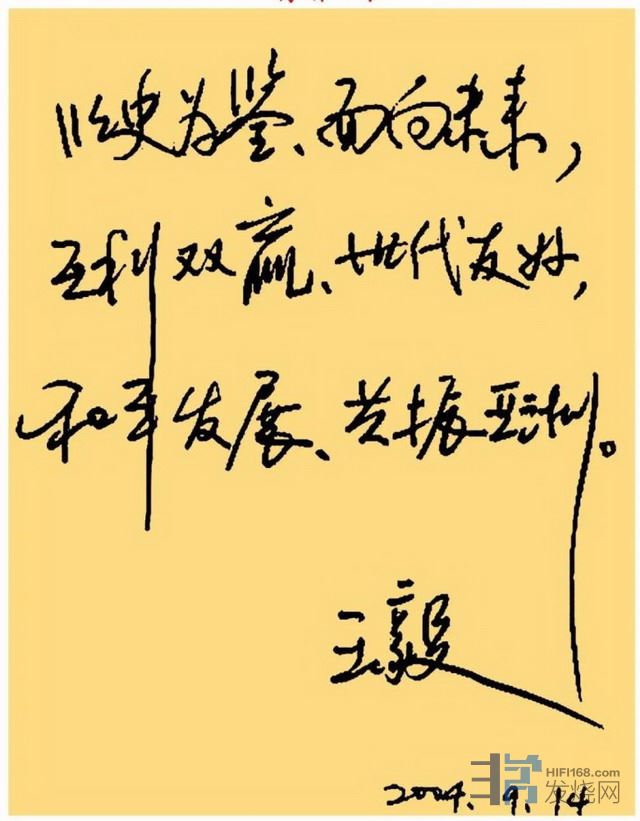 以史为鉴、面向未来，
互利双赢、世代友好，
和平发展、共振亚洲。
王毅
2004.9.14
HIFI168.com
发烧网